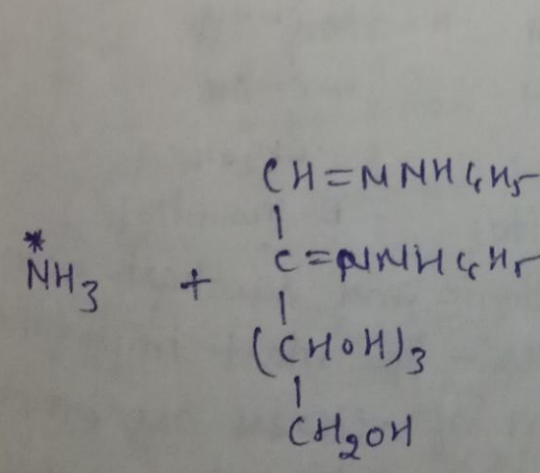 CH=NNHC6H5
*
NH3 + C=NNHC6H5
(CHOH)3
CH2OH